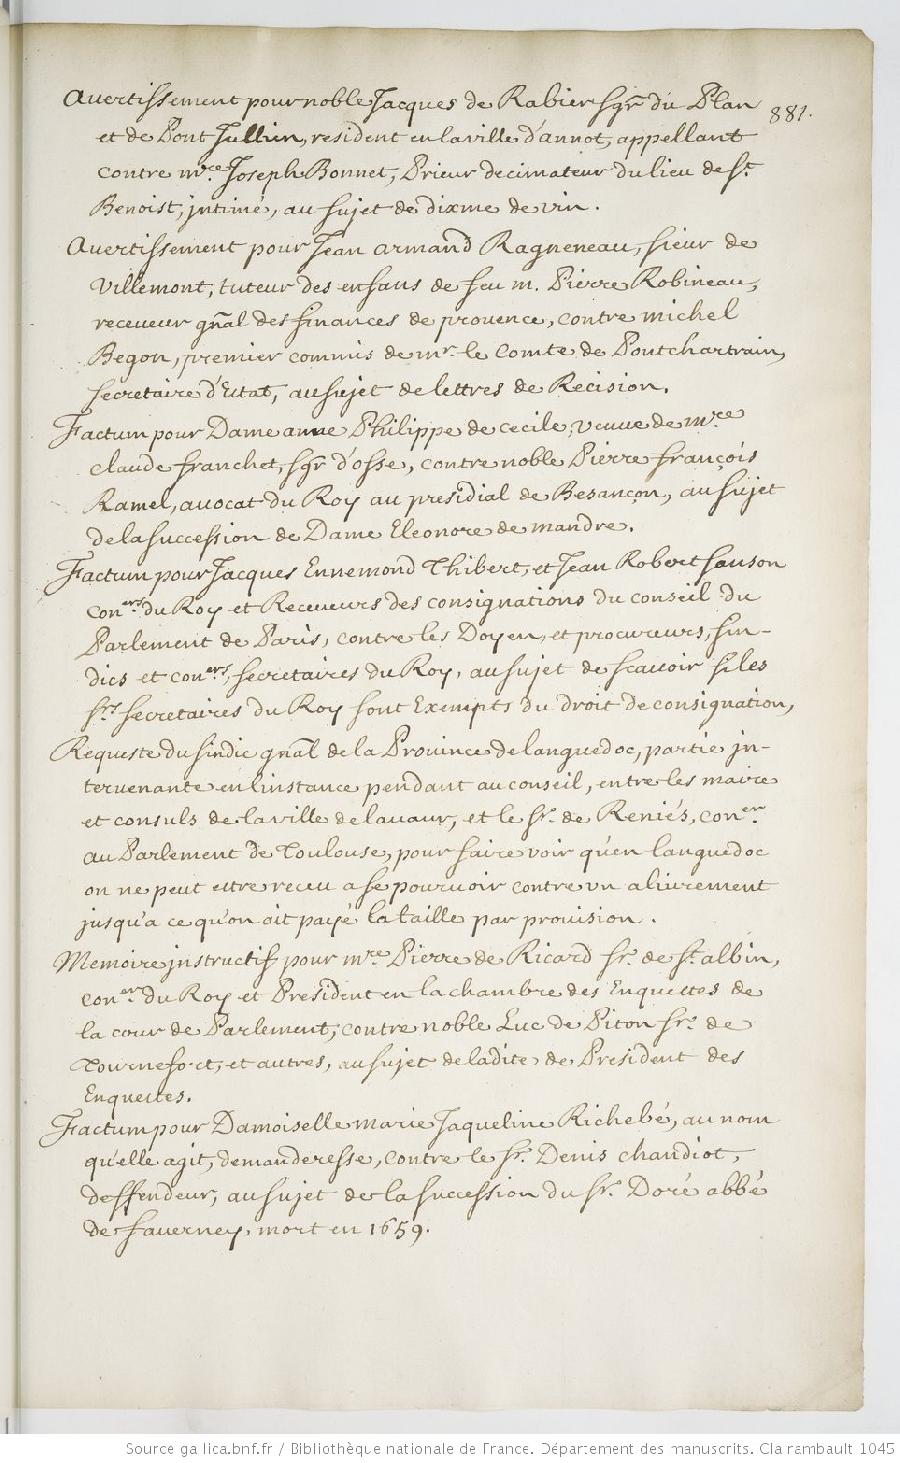 881.
Avertissement pour noble Jacques de Rabier sgr du Plan
et de Pont Jullien, resident en la ville d'annot, appellant
contre mre Joseph Bonnet, Prieur decimateur du lieu de St
Benoist, jntimé, au sujet de dixme de vin.
Avertissement pour Jean armand Ragneneau, sieur de
Villemont, tuteur des enfans de feu m. Pierre Robineau,
receveur gñal des finances de provence, contre michel
Begon, premier commis de mr. le Comte de Pontchartrain,
secretaire d'Etat, au sujet de lettres de Recision.
Factum pour Dame anne Philippe de Cecile, veuve de mre
claude franchet, sgr d'osse, contre noble Pierre françois
Ramel, avocat du Roy au presidial de Besançon, au sujet
de la succession de Dame Eleonore de mandre.
Factum pour Jacques Ennemond Thibert, et Jean Robert sanson
coners du Roy et Receveurs des consignations du conseil du
Parlement de Paris, contre les Doyen, et procureurs, sin-
dics et coners, secretaires du Roy, au sujet de scavoir si les
srs secretaires du Roy sont Exempts du droit de consignation,
Requeste du sindic gñal de la Province de languedoc, partie jn-
tervenante en l'instance pendant au conseil, entre les maire
et consuls de la ville de lavaur, et le sr. de Reniés, coner
au Parlement de Toulouse, pour faire voir qu'en languedoc
on ne peut estre receu a se pourvoir contre un alivrement
jusqu'a ce qu'on ait payé la taille par provision.
Memoire jnstructif pour mre Pierre de Ricard sr. de st. albin,
coner du Roy et President en la chambre des Enquettes de
la cour de Parlement, contre noble Luc de Piton sr. de
Tournefort, et autres, au sujet de ladite de President des
Enquestes.
Factum pour Damoiselle marie Jaqueline Richebé, au nom
qu'elle agit, demanderesse, contre le sr. Denis chandiot,
deffendeur, au sujet de la succession du sr. Doré abbé
de faverney, mort en 1659.
Source gallica.bnf.fr / Bibliothèque nationale de France. Département des manuscrits. Clairambault 1045